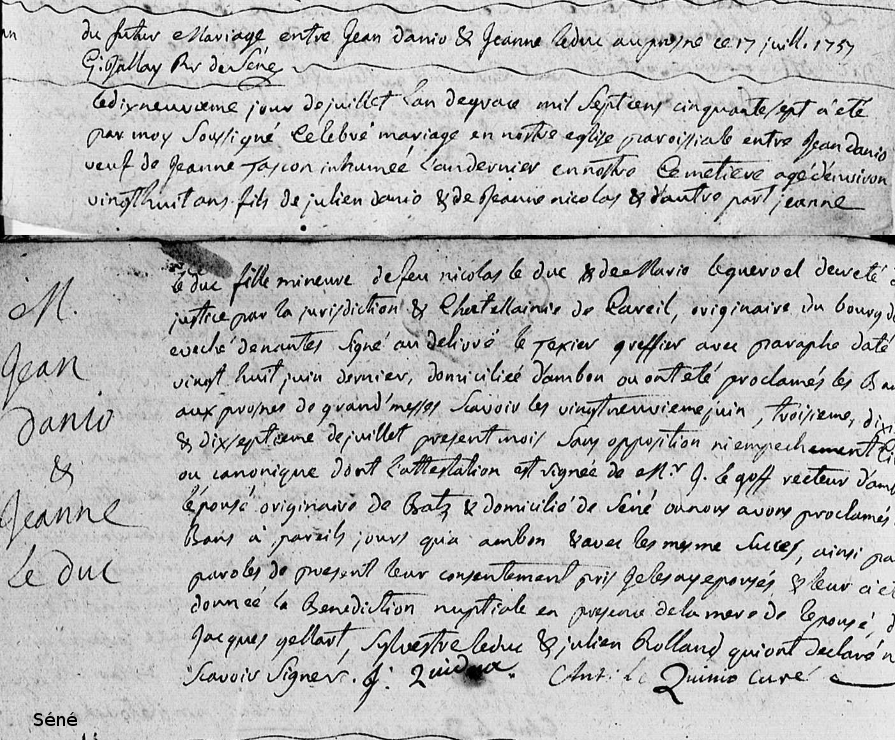 du futur Mariage entre Jean danio & Jeanne leduc au prosne ce 17 juill. 1757
G. Jallay Rr de Séné
le dix neuvieme jour de juillet l'an de grace mil Sept cens cinquante sept a été
par moy Soussigné Celebré mariage en nostre eglise paroissiale entre Jean danio
veuf de Jeanne Tascon inhumeé l'an dernier en nostre Cemetiere agé d'environ
vingt huit ans fils de julien danio & de Jeanne nicolas & d'autre part jeanne
le duc fille mineure de feu nicolas le duc & de Marie lequerol decreté
justice par la jurisdiction & Chatellainie de Careil, originaire du bourg de
eveché de nantes Signé au delivré le Texier greffier avec paraphe daté
vingt huit juin dernier, domiciliée d'ambon ou ont eté proclamés les Ban
aux prosnes de grand'messes Scavoir les vingt neuvieme juin, troisieme, dix
& dix septieme de juillet present mois Sans opposition ni empechement Ci
ou canonique dont l'attestation est signée de Mr. J. le goff recteur d'amb
l'epousé originaire de Batz & domicilié de Séné ou nous avons proclamés
Bans a pareils jours qu'a ambon & avec les mesme Succes, ainsi pa
paroles de present leur consentement pris Je les ay epousés & leur a eté
donneé la Benediction nuptiale en presence de la mere de l'epousé, d
Jacques gellart, Sylvestre leduc & julien Rolland qui ont declaré n
Scavoir Signer. J. Ant. Le Quinio curé
M.
Jean
danio
&
Jeanne
Le duc
Séné